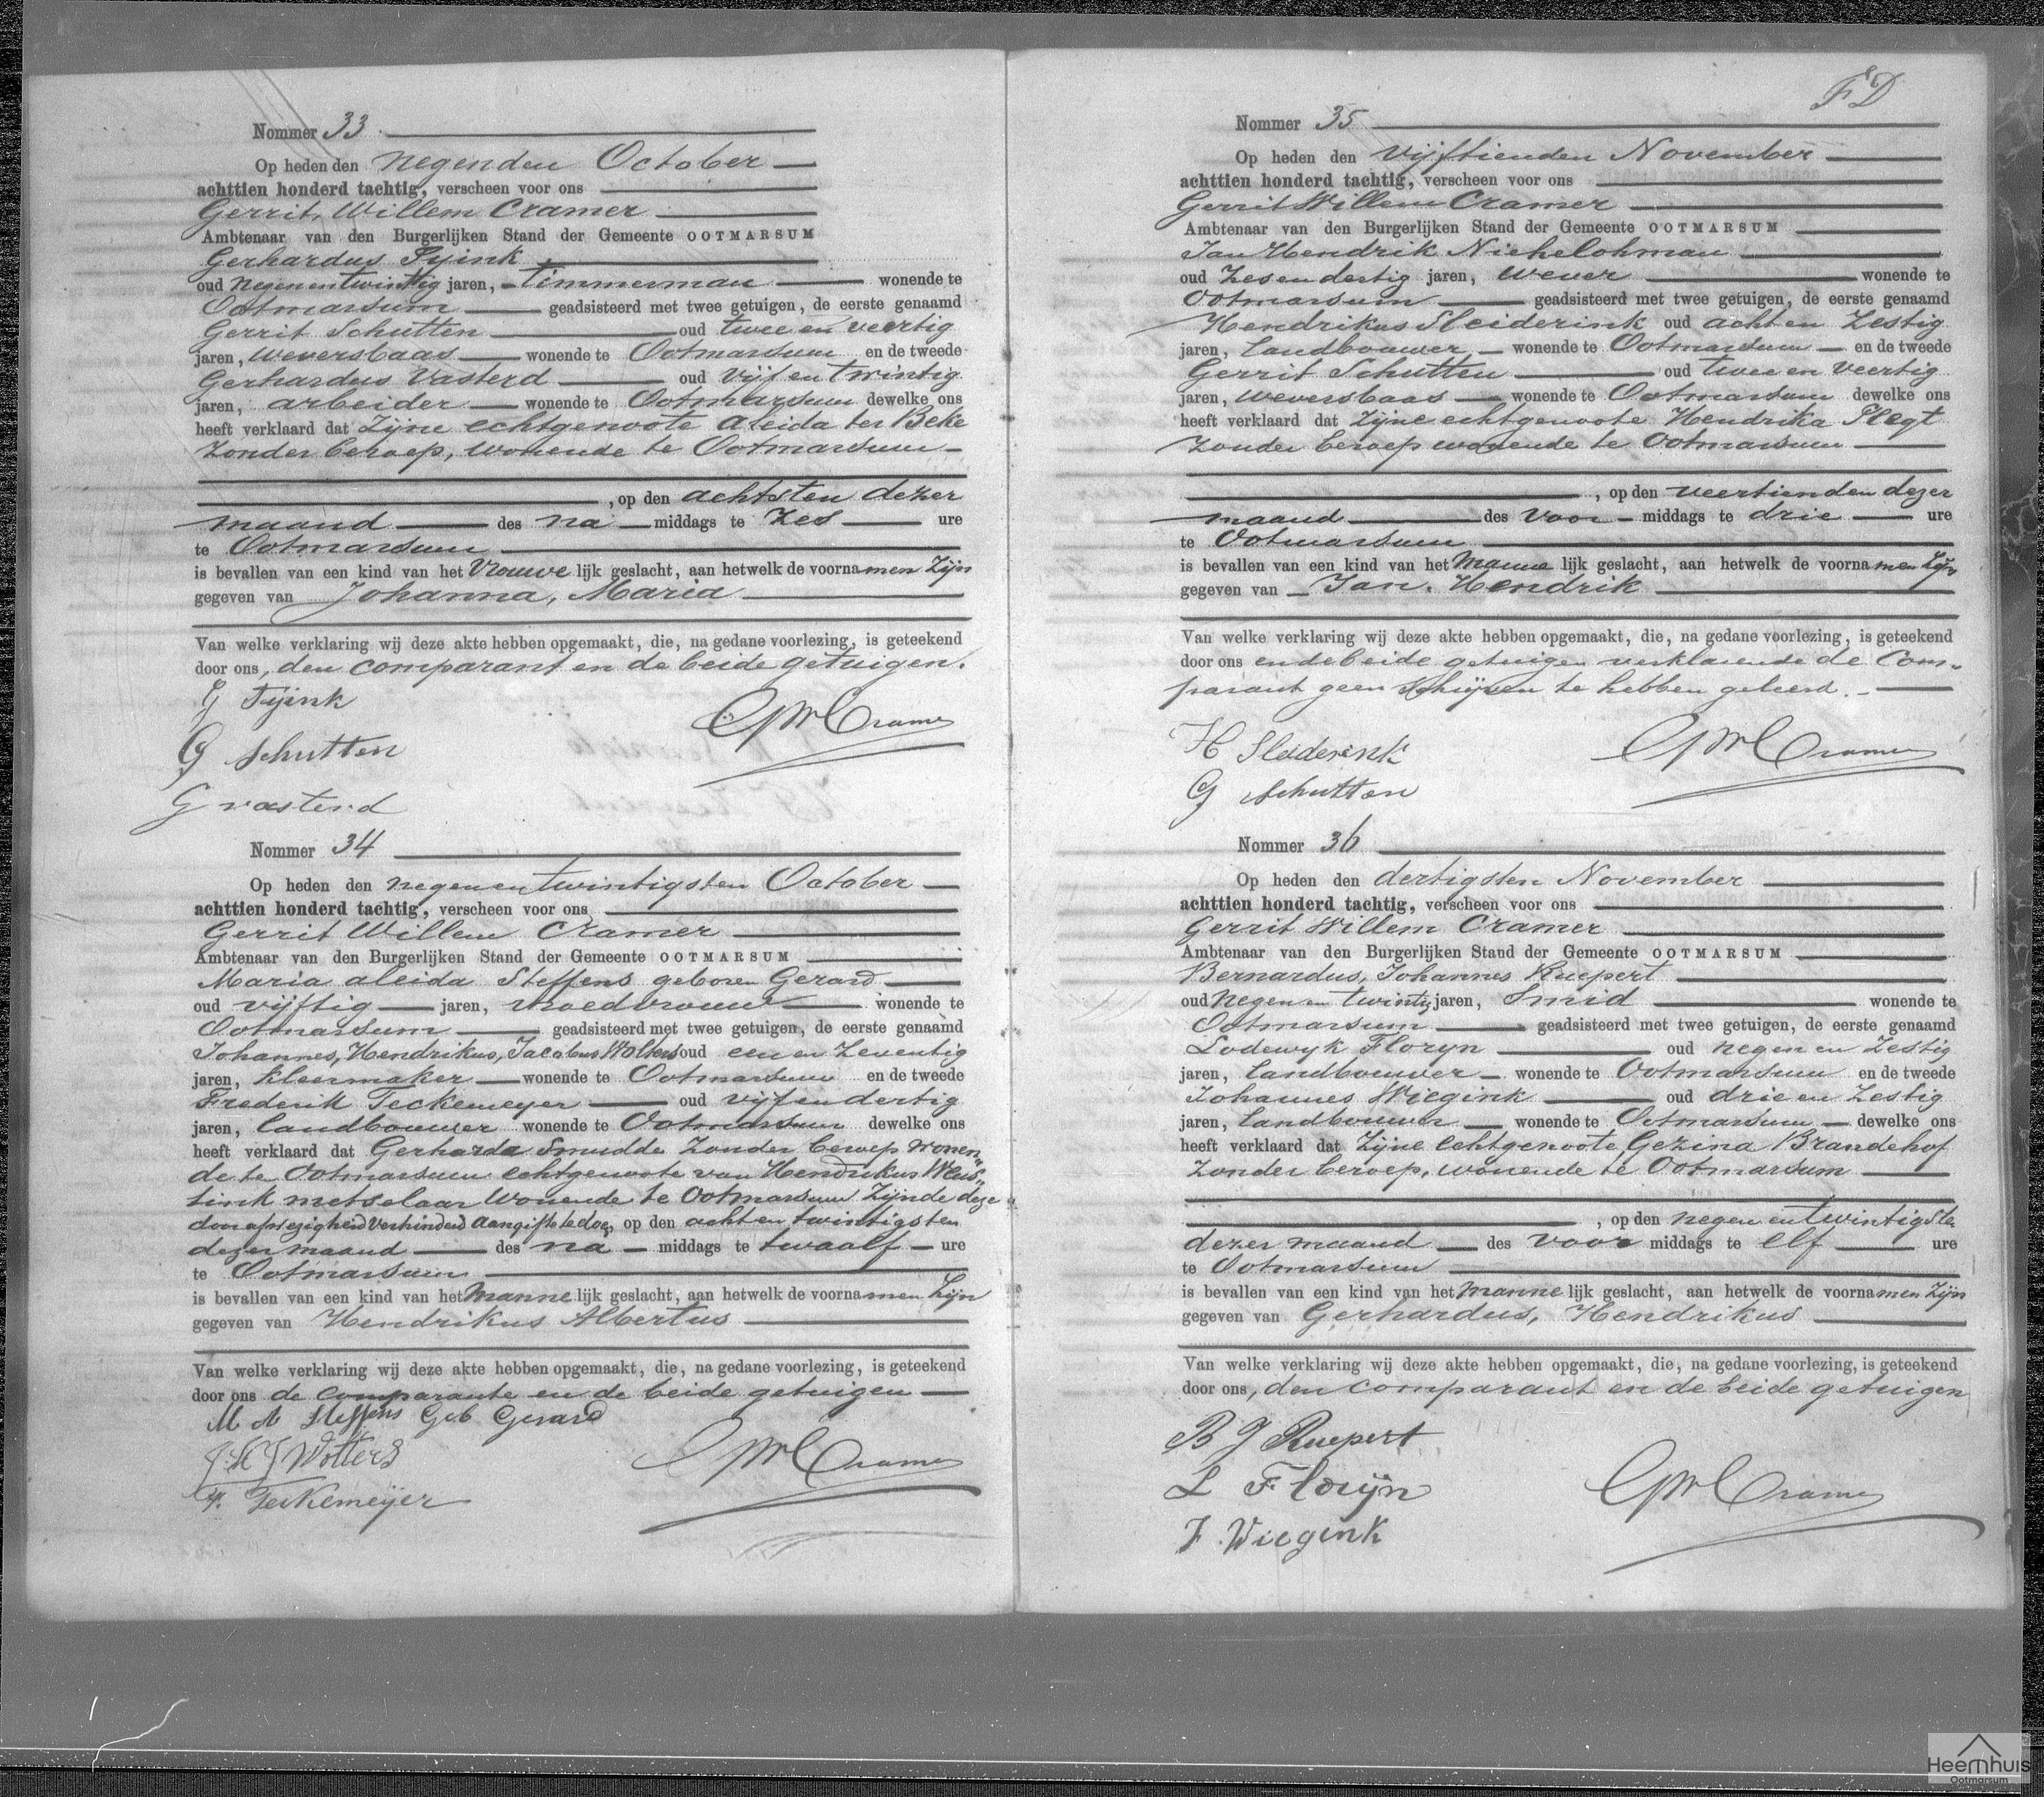 Nommer 33
Op heden den negenden October
achttien honderd tachtig, verscheen voor ons
Gerrit, Willem Cramer
Ambtenaar van den Burgerlijken Stand der Gemeente OOTMARSUM
Gerhardus Tyink
oud negenentwintig jaren, timmerman wonende te
Ootmarsum geadsisteerd met twee getuigen, de eerste genaamd
Gerrit Schutten oud twee en veertig
jaren, weversbaas wonende te Ootmarsum en de tweede
Gerhardus Vasterd oud vijf en twintig
jaren, arbeider wonende te Ootmarsum dewelke ons
heeft verklaard dat Zijne echtgenoote Aleida ter Beke
Zonder beroep, wonende te Ootmarsum
, op den achtsten dezer
maand des na middags te Zes ure
te Ootmarsum
is bevallen van een kind van het Vrouwe lijk geslacht, aan hetwelk de voornamen Zijn
gegeven van Johanna, Maria
Van welke verklaring wij deze akte hebben opgemaakt, die, na gedane voorlezing, is geteekend
door ons, den comparant en de beide getuigen.
G Tijink
GW Cramer
G Schutten
G vasterd
Nommer 34
Op heden den negenentwintigsten October
achttien honderd tachtig, verscheen voor ons
Gerrit Willem Cramer
Ambtenaar van den Burgerlijken Stand der Gemeente OOTMARSUM
Maria aleida Steffens geboren Gerard
oud vijftig jaren, vroedvrouw wonende te
Ootmarsum geadsisteerd met twee getuigen, de eerste genaamd
Johannes, Hendrikus, Jacobus Wolters oud een en Zeventig
jaren, kleermaker wonende te Ootmarsum en de tweede
Frederik Teckemeyer oud vijf en dertig
jaren, landbouwer wonende te Ootmarsum dewelke ons
heeft verklaard dat Gerharda Smudde Zonder beroep wonen„
de te Ootmarsum echtgenoote van Hendrikus Weus„
tink metselaar wonende te Ootmarsum Zijnde deze
door afwezigheid verhinderd aangifte te doen, op den acht en twintigsten
dezer maand des na middags te twaalf ure
te Ootmarsum
is bevallen van een kind van het Manne lijk geslacht, aan hetwelk de voornamen Zijn
gegeven van Hendrikus Albertus
Van welke verklaring wij deze akte hebben opgemaakt, die, na gedane voorlezing, is geteekend
door ons de comparante en de beide getuigen
M A Steffens Geb Gerard
J H J Wolters
GW Cramer
F. Teckemeijer
FD
Nommer 35
Op heden den vijftienden November
achttien honderd tachtig, verscheen voor ons
Gerrit Willem Cramer
Ambtenaar van den Burgerlijken Stand der Gemeente OOTMARSUM
Jan Hendrik Niehelohman
oud Zesendertig jaren, wever wonende te
Ootmarsum geadsisteerd met twee getuigen, de eerste genaamd
Hendrikus Sleiderink oud acht en Zestig
jaren, landbouwer wonende te Ootmarsum en de tweede
Gerrit Schutten oud twee en veertig
jaren, weversbaas wonende te Ootmarsum dewelke ons
heeft verklaard dat Zijne echtgenoote Hendrika Slegt
Zonder beroep wonende te Ootmarsum
, op den veertienden dezer
maand des Voor middags te drie ure
te Ootmarsum
is bevallen van een kind van het Manne lijk geslacht, aan hetwelk de voornamen Zijn
gegeven van Jan, Hendrik
Van welke verklaring wij deze akte hebben opgemaakt, die, na gedane voorlezing, is geteekend
door ons en de beide getuigen verklarende de Com„
parant geen schrijven te hebben geleerd.
H Sleiderink
GW Cramer
G Schutten
Nommer 36
Op heden den dertigsten November
achttien honderd tachtig, verscheen voor ons
Gerrit Willem Cramer
Ambtenaar van den Burgerlijken Stand der Gemeente OOTMARSUM
Bernardus, Johannes Ruepert
oud negen en twintig jaren, Smid wonende te
Ootmarsum geadsisteerd met twee getuigen, de eerste genaamd
Lodewyk Floryn oud negen en Zestig
jaren, landbouwer wonende te Ootmarsum en de tweede
Johannes Wiegink oud drie en Zestig
jaren, landbouwer wonende te Ootmarsum dewelke ons
heeft verklaard dat Zijne echtgenoote Gezina Brandehof
Zonder beroep, wonende te Ootmarsum
, op den negen en twintigste
dezer maand des voor middags te elf ure
te Ootmarsum
is bevallen van een kind van het manne lijk geslacht, aan hetwelk de voornamen Zijn
gegeven van Gerhardus, Hendrikus
Van welke verklaring wij deze akte hebben opgemaakt, die, na gedane voorlezing, is geteekend
door ons, den comparant en de beide getuigen
B J Ruepert
L Florijn
GW Cramer
J. Wiegink
Heemhuis
Ootmarsum